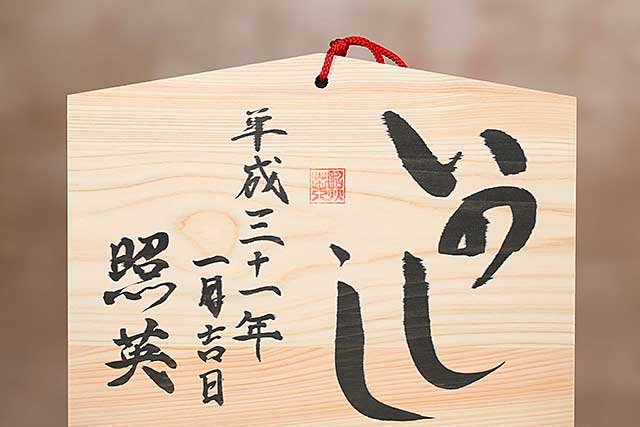 いのしし
平成三十一年
一月吉日
照英